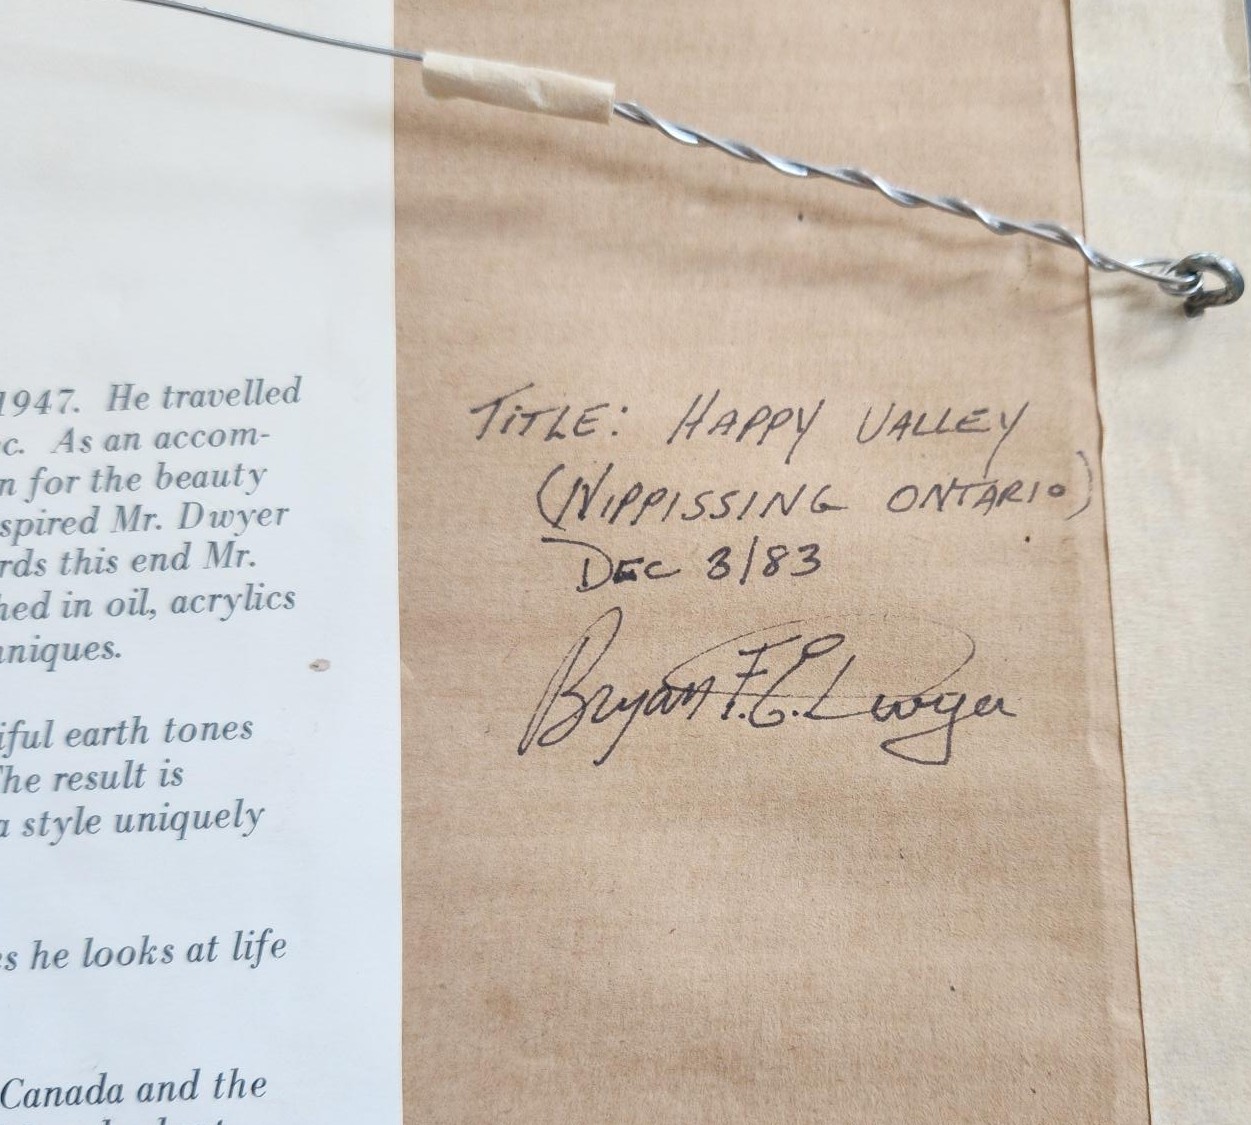 1947. He travelled
c. As an accom-
n for the beauty
spired Mr. Dwyer
rds this end Mr.
hed in oil, acrylics
niques.
iful earth tones
The result is
a style uniquely
s he looks at life
Canada and the
TITLE: HAPPY VALLEY
(NIPPISSING ONTARIO)
DEC 3/83
Bryan F.E. Dwyer